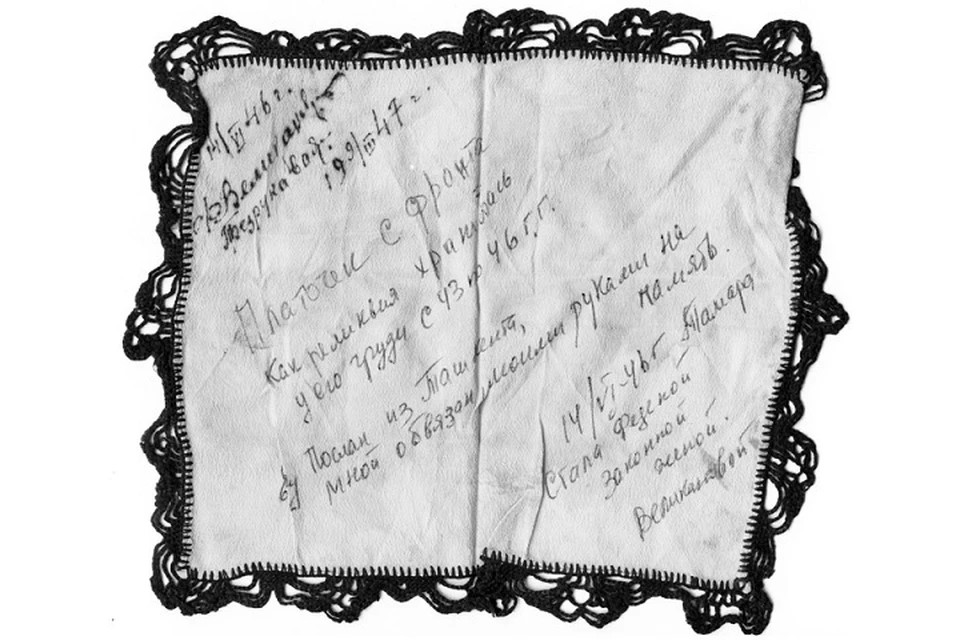 14/VI 46 г.
Великанов
Безрукавая.
199/III 47 г.
Платочек с фронта
Как реликвия хранилась
у его груди с 43 по 46 г.г.
Послан из Ташкента,
мной обвязан моими руками на
память.
14/VI-46 г. Тамара
Стала
законной
женой.
Великановой